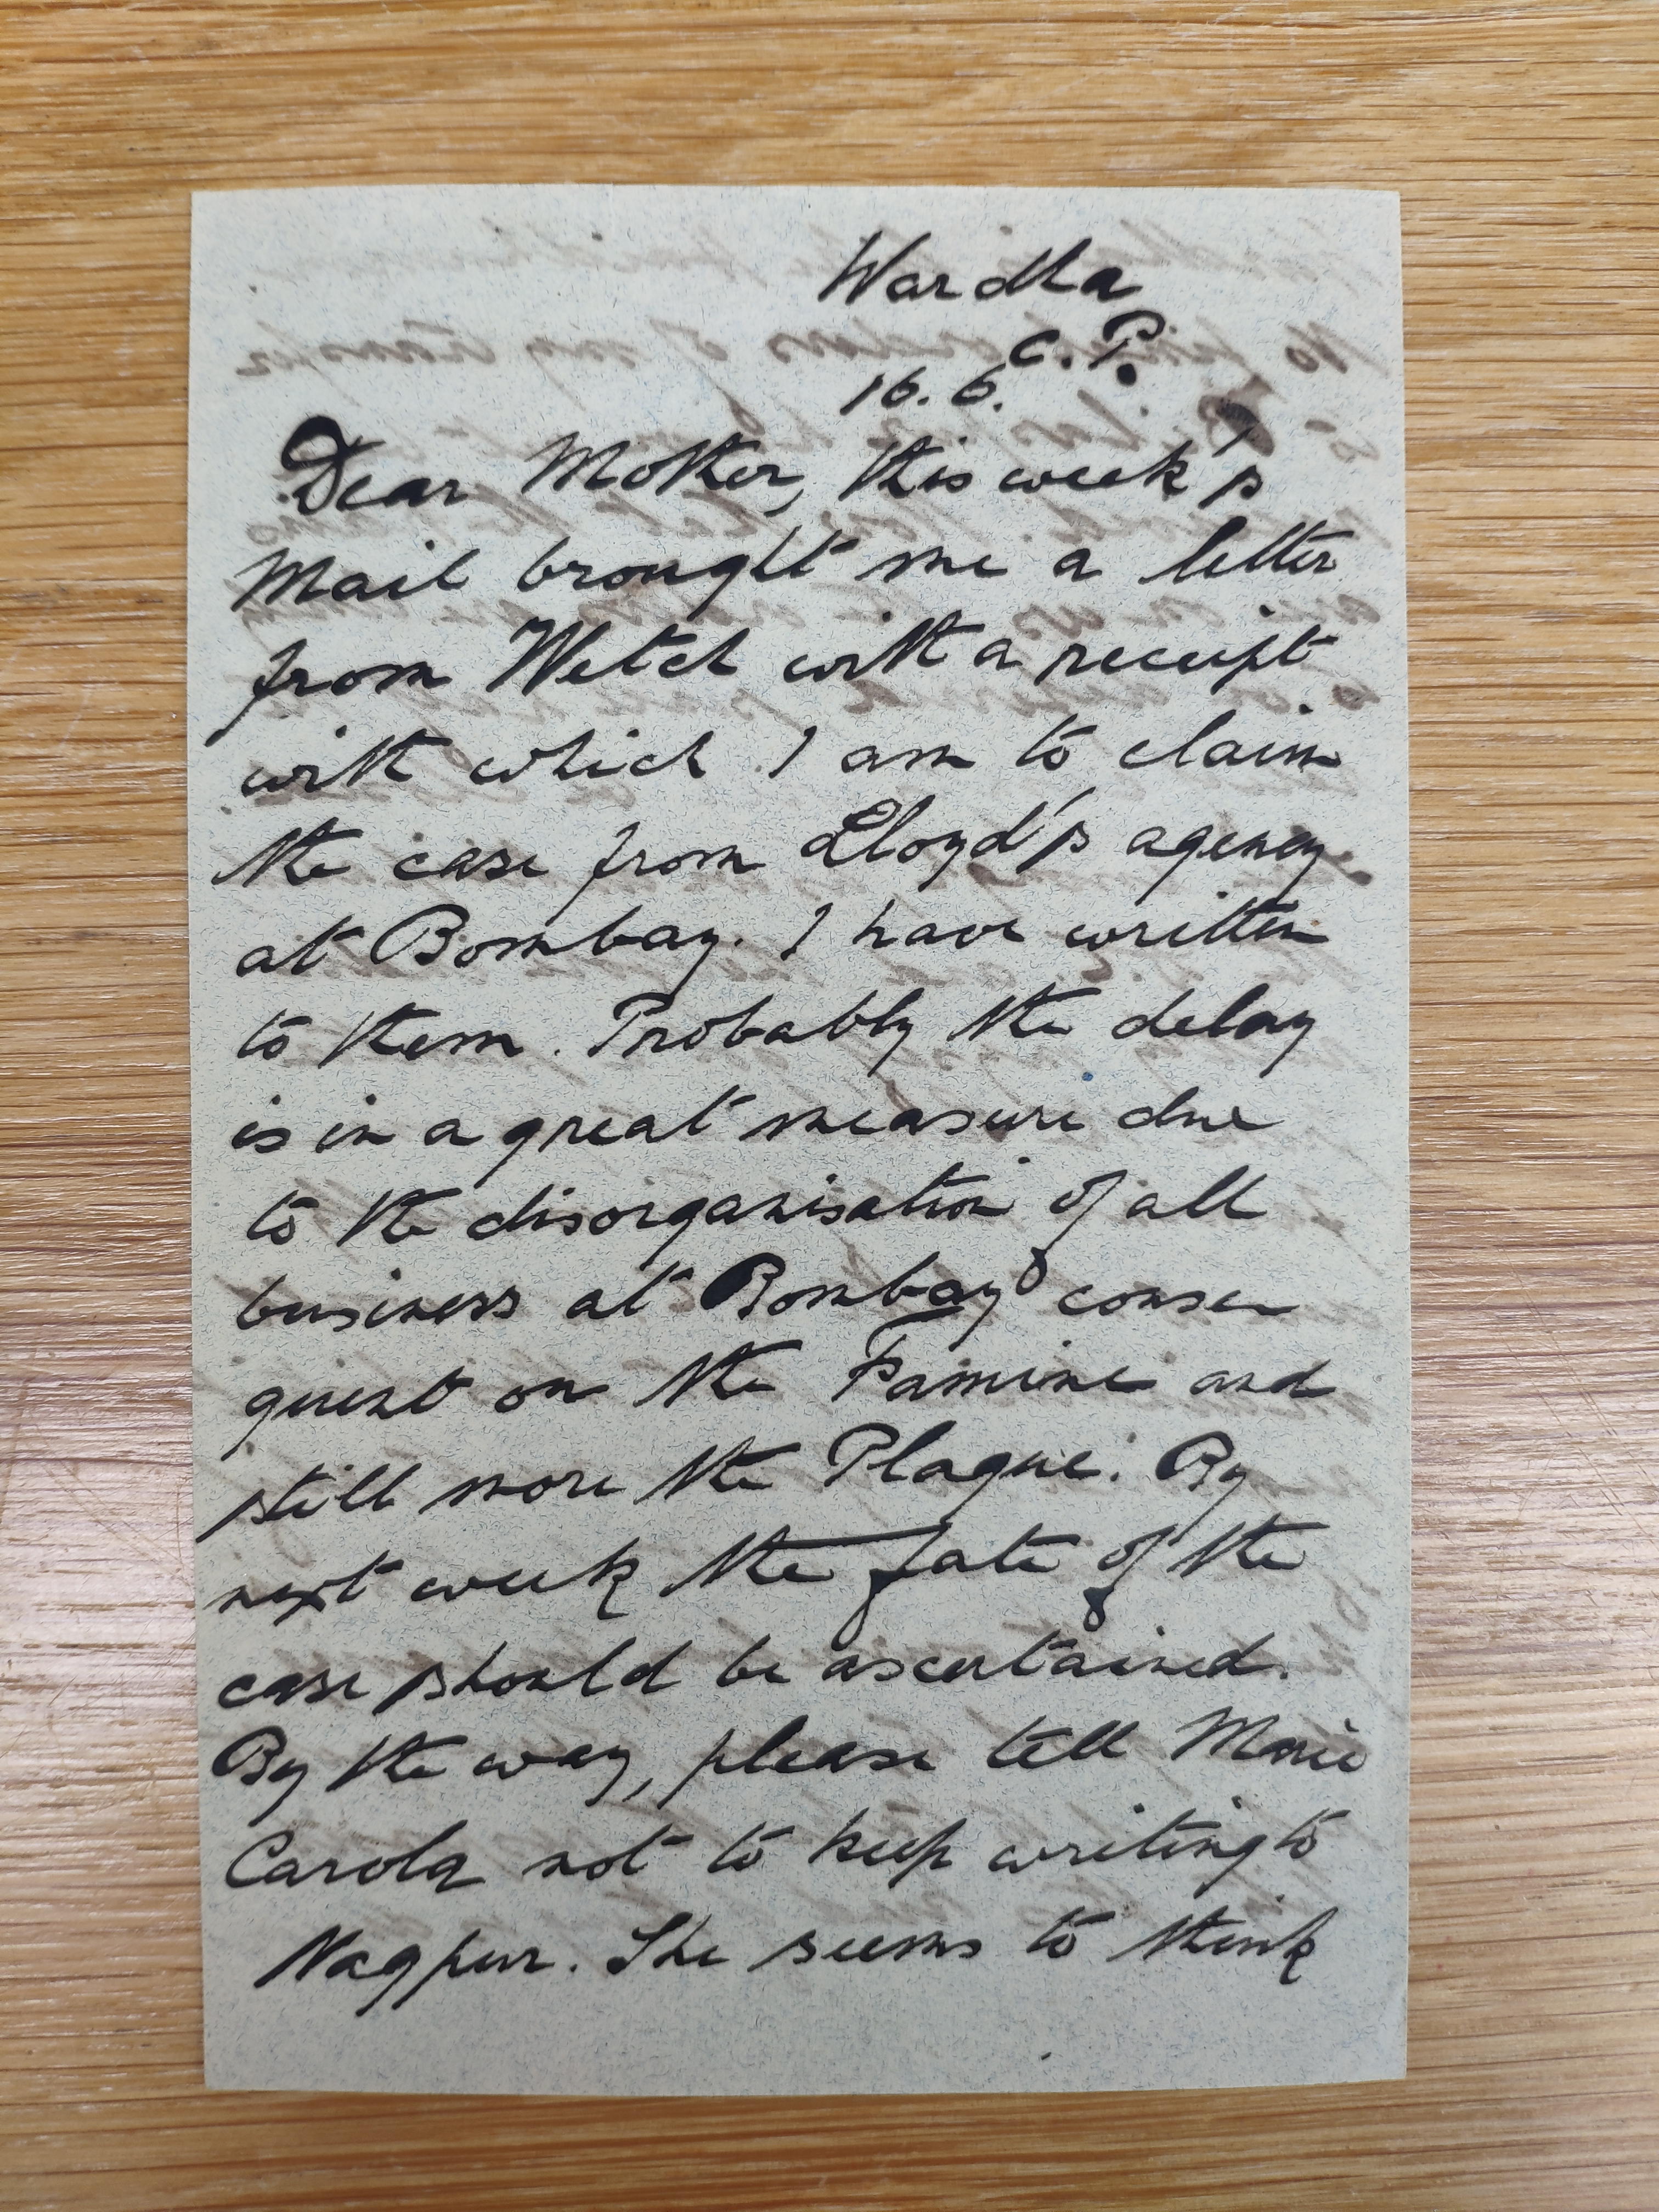 Wardha
C.P.
16.6.
Dear Mother, this week's
Mail brought me a letter
from Wetch with a receipt
with which I am to claim
the case from Lloyd's agency
at Bombay. I have written
to them. Probably the delay
is in a great measure due
to the disorganisation of all
business at Bombay conse
quent on the Famine and
still more the Plague. By
next week the fate of the
case should be ascertained.
By the way, please tell Marie
Carola not to keep writing to
Nagpur. She seems to think